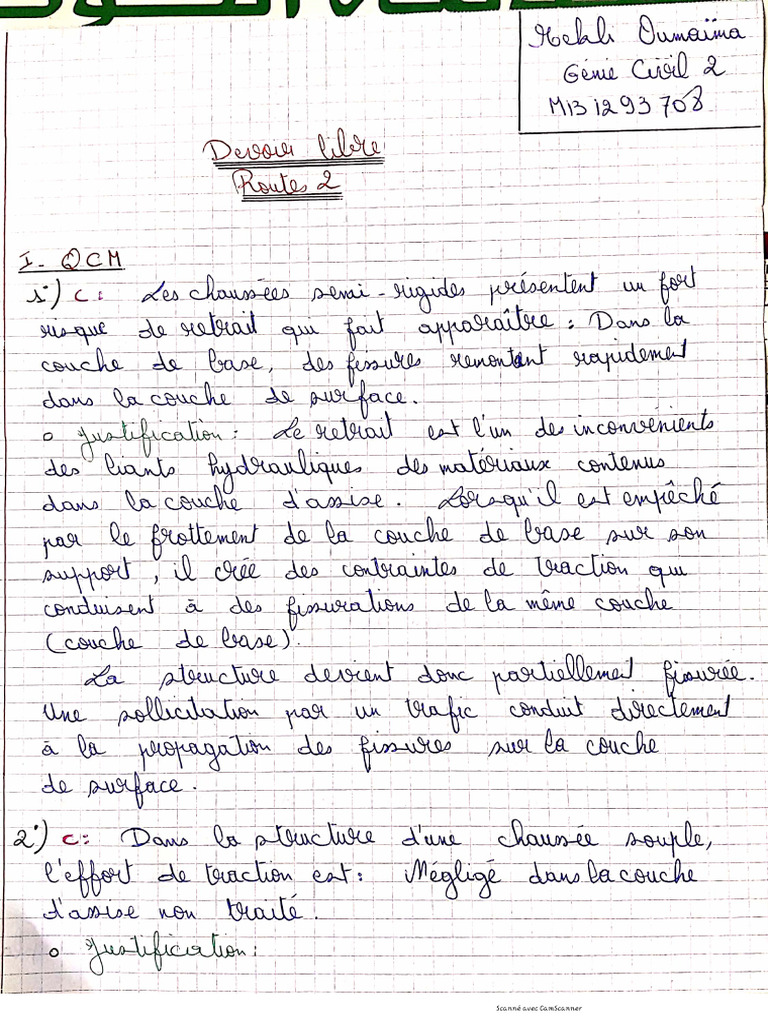 Mekli Oumaïma
Génie Civil 2
M13 1293708
Devoir libre
Routes 2
I- QCM
1°) C: Les chaussées semi-rigides présentent un fort
risque de retrait qui fait apparaître : Dans la
couche de base, des fissures remontant rapidement
dans la couche de surface.
o Justification : Le retrait est l'un des inconvénients
des liants hydrauliques des matériaux contenus
dans la couche d'assise. Lorsqu'il est empêché
par le frottement de la couche de base sur son
support, il crée des contraintes de traction qui
conduisent à des fissurations de la même couche
(couche de base).
La structure devient donc partiellement fissurée.
Une sollicitation par un trafic conduit directement
à la propagation des fissures sur la couche
de surface.
2°) C: Dans la structure d'une chaussée souple,
l'effort de traction est : Négligé dans la couche
d'assise non traité.
o Justification :
Scanné avec CamScanner